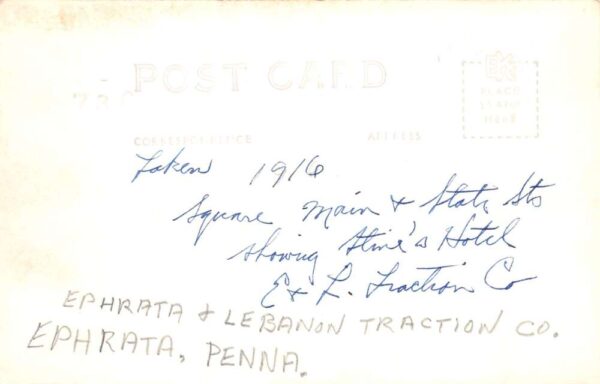 POST CARD
EKC
PLACE
STAMP
HERE
CORRESPONDENCE ADDRESS
Taken 1916
Square Main & State Sts
showing Stine's Hotel
E & L. Traction Co
EPHRATA & LEBANON TRACTION CO.
EPHRATA, PENNA.